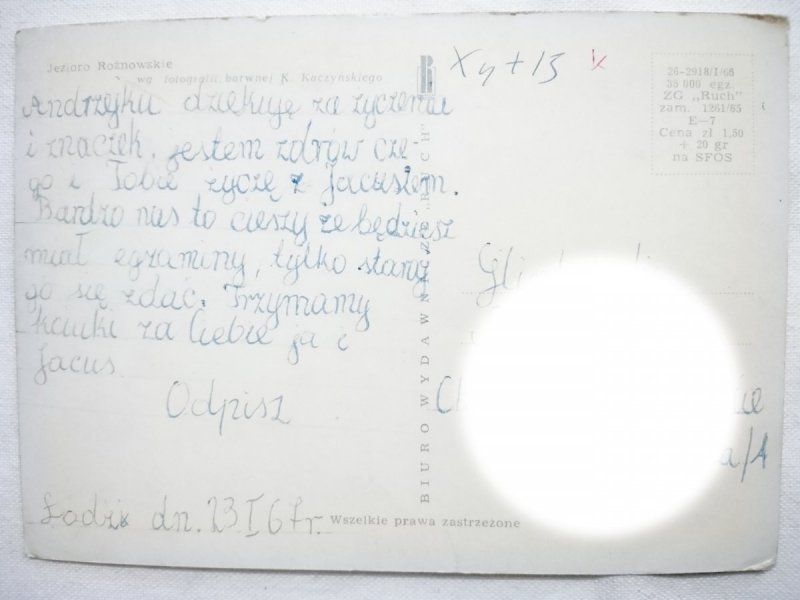 Jezioro Rożnowskie
wg fotografii barwnej K. Kaczyńskiego
Andrzejku dziekuję za życzenia
i znaczek, jestem zdrów cze-
go i Tobie życzę z Jacusiem.
Bardzo nas to cieszy że będziesz
miał egzaminy, tylko staraj
go się zdać. Trzymamy
kciuki za Ciebie ja i
Jacus
Odpisz
Łodzi dn. 23 I 67r.
Wszelkie prawa zastrzeżone
BIURO WYDAWN. "RUCH"
Xy + 13 x
26-2918/I/66
35 000 egz.
ZG „Ruch"
zam. 1261/65
E—7
Cena zł 1,50
+ 20 gr
na SFOS
a/1